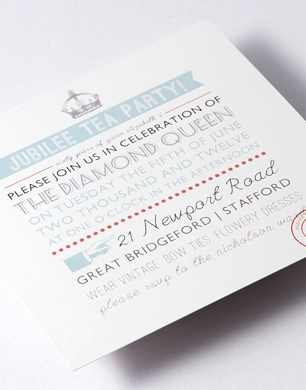 JUBILEE TEA PARTY!
sixty years of queen elizabeth II
PLEASE JOIN US IN CELEBRATION OF
THE DIAMOND QUEEN
ON TUESDAY THE FIFTH OF JUNE
TWO THOUSAND AND TWELVE
AT ONE O'CLOCK IN THE AFTERNOON
21 Newport Road
GREAT BRIDGEFORD | STAFFORD
WEAR VINTAGE BOW TIES FLOWERY DRESSES
please rsvp to the nicholson